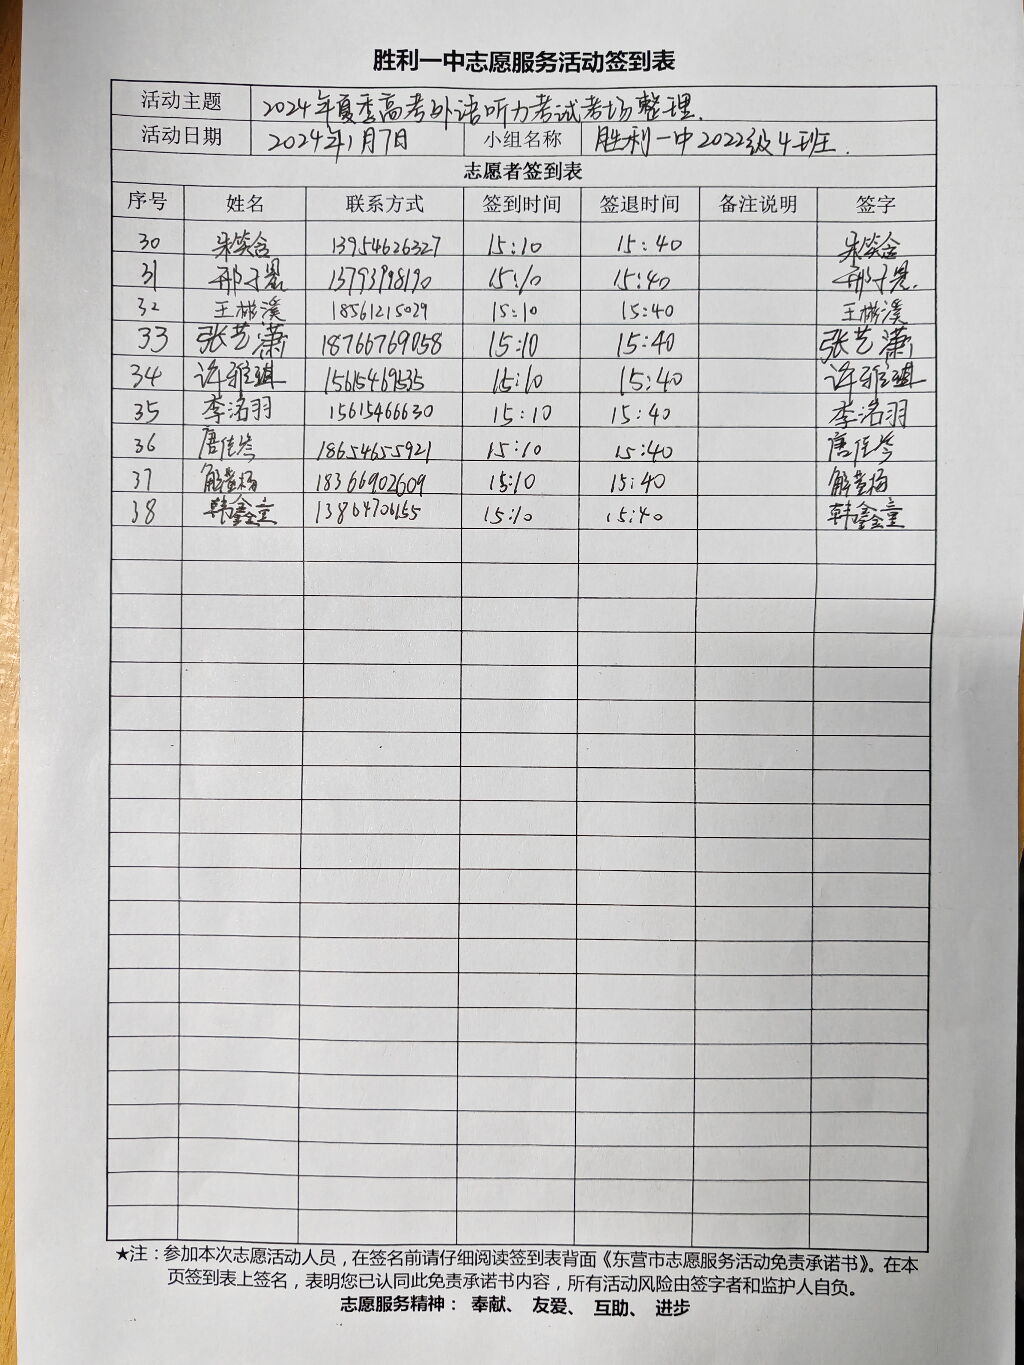 胜利一中志愿服务活动签到表
活动主题 2024年夏季高考外语听力考试考场整理.
活动日期 2024年1月7日 小组名称 胜利一中2022级4班.
志愿者签到表
序号 姓名 联系方式 签到时间 签退时间 备注说明 签字
30 朱笑含 13954626327 15:10 15:40 朱笑含
31 邢子恩 13793998190 15:10 15:40 邢子恩.
32 王彬溪 18561215029 15:10 15:40 王彬溪
33 张艺潇 18766769058 15:10 15:40 张艺潇
34 许雅琪 15615469535 15:10 15:40 许雅琪
35 李洺羽 15615466630 15:10 15:40 李洺羽
36 唐佳岑 18654655921 15:10 15:40 唐佳岑
37 解黄杨 18366902609 15:10 15:40 解黄杨
38 韩鑫童 13864706155 15:10 15:40 韩鑫童
★注：参加本次志愿活动人员，在签名前请仔细阅读签到表背面《东营市志愿服务活动免责承诺书》。在本
页签到表上签名，表明您已认同此免责承诺书内容，所有活动风险由签字者和监护人自负。
志愿服务精神： 奉献、 友爱、 互助、 进步